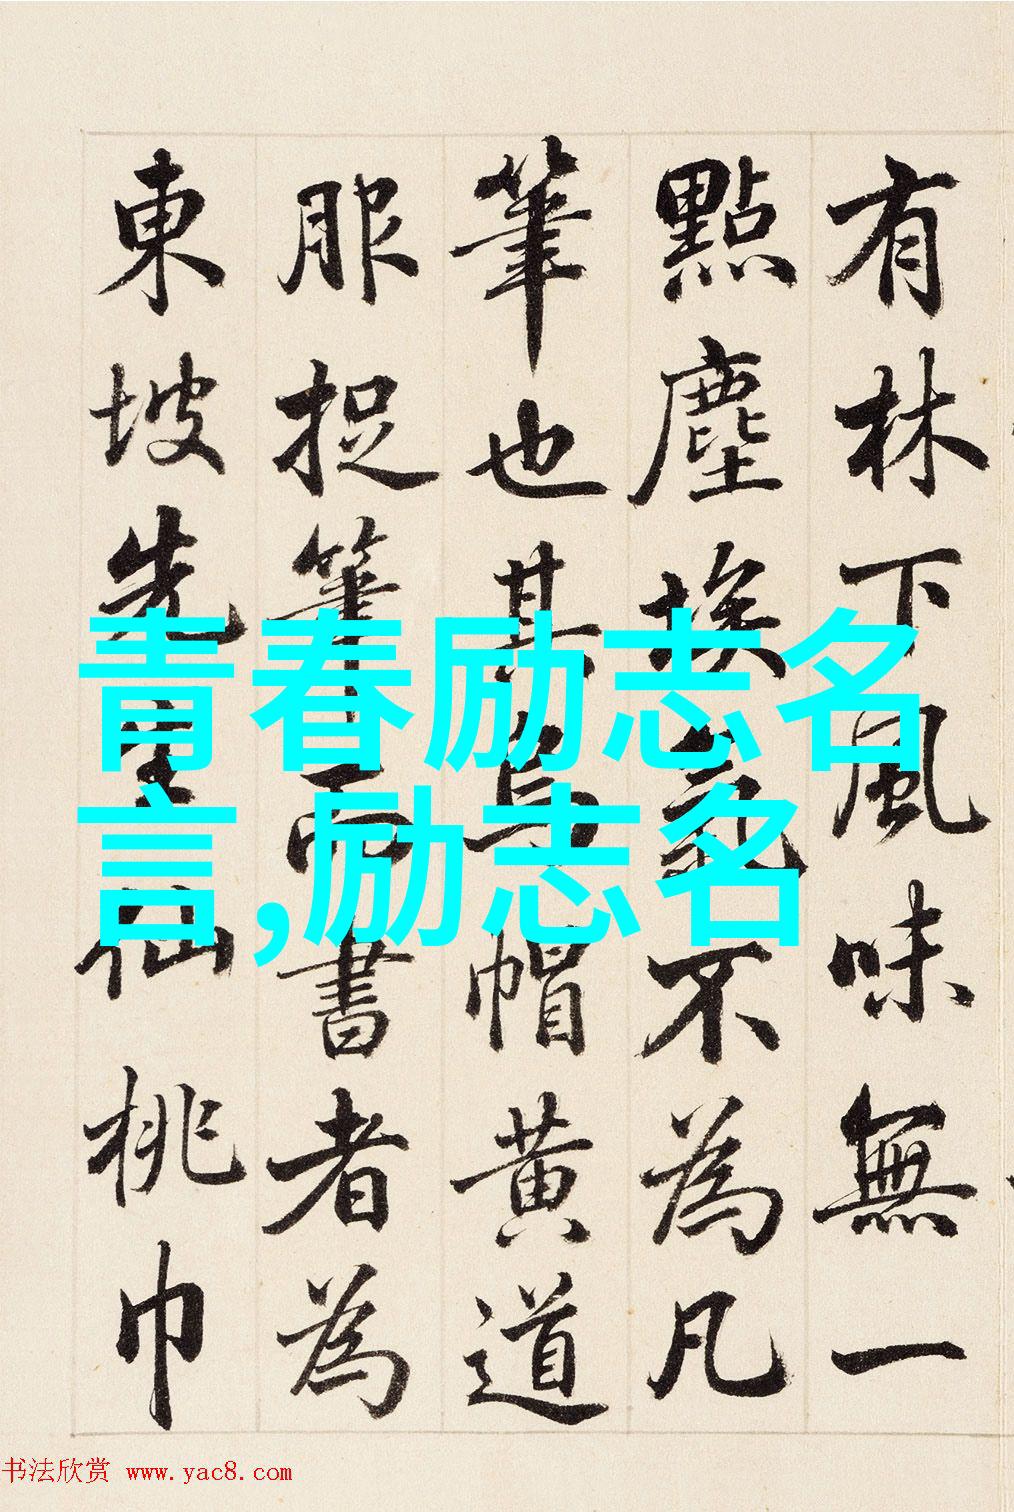 有林下風味無一
點塵埃氣不為凡
筆也其烏帽黃道
服捉筆而書者為
東坡先生仙桃巾
青春励志名
言,励志名
书法欣赏 www.yac8.com